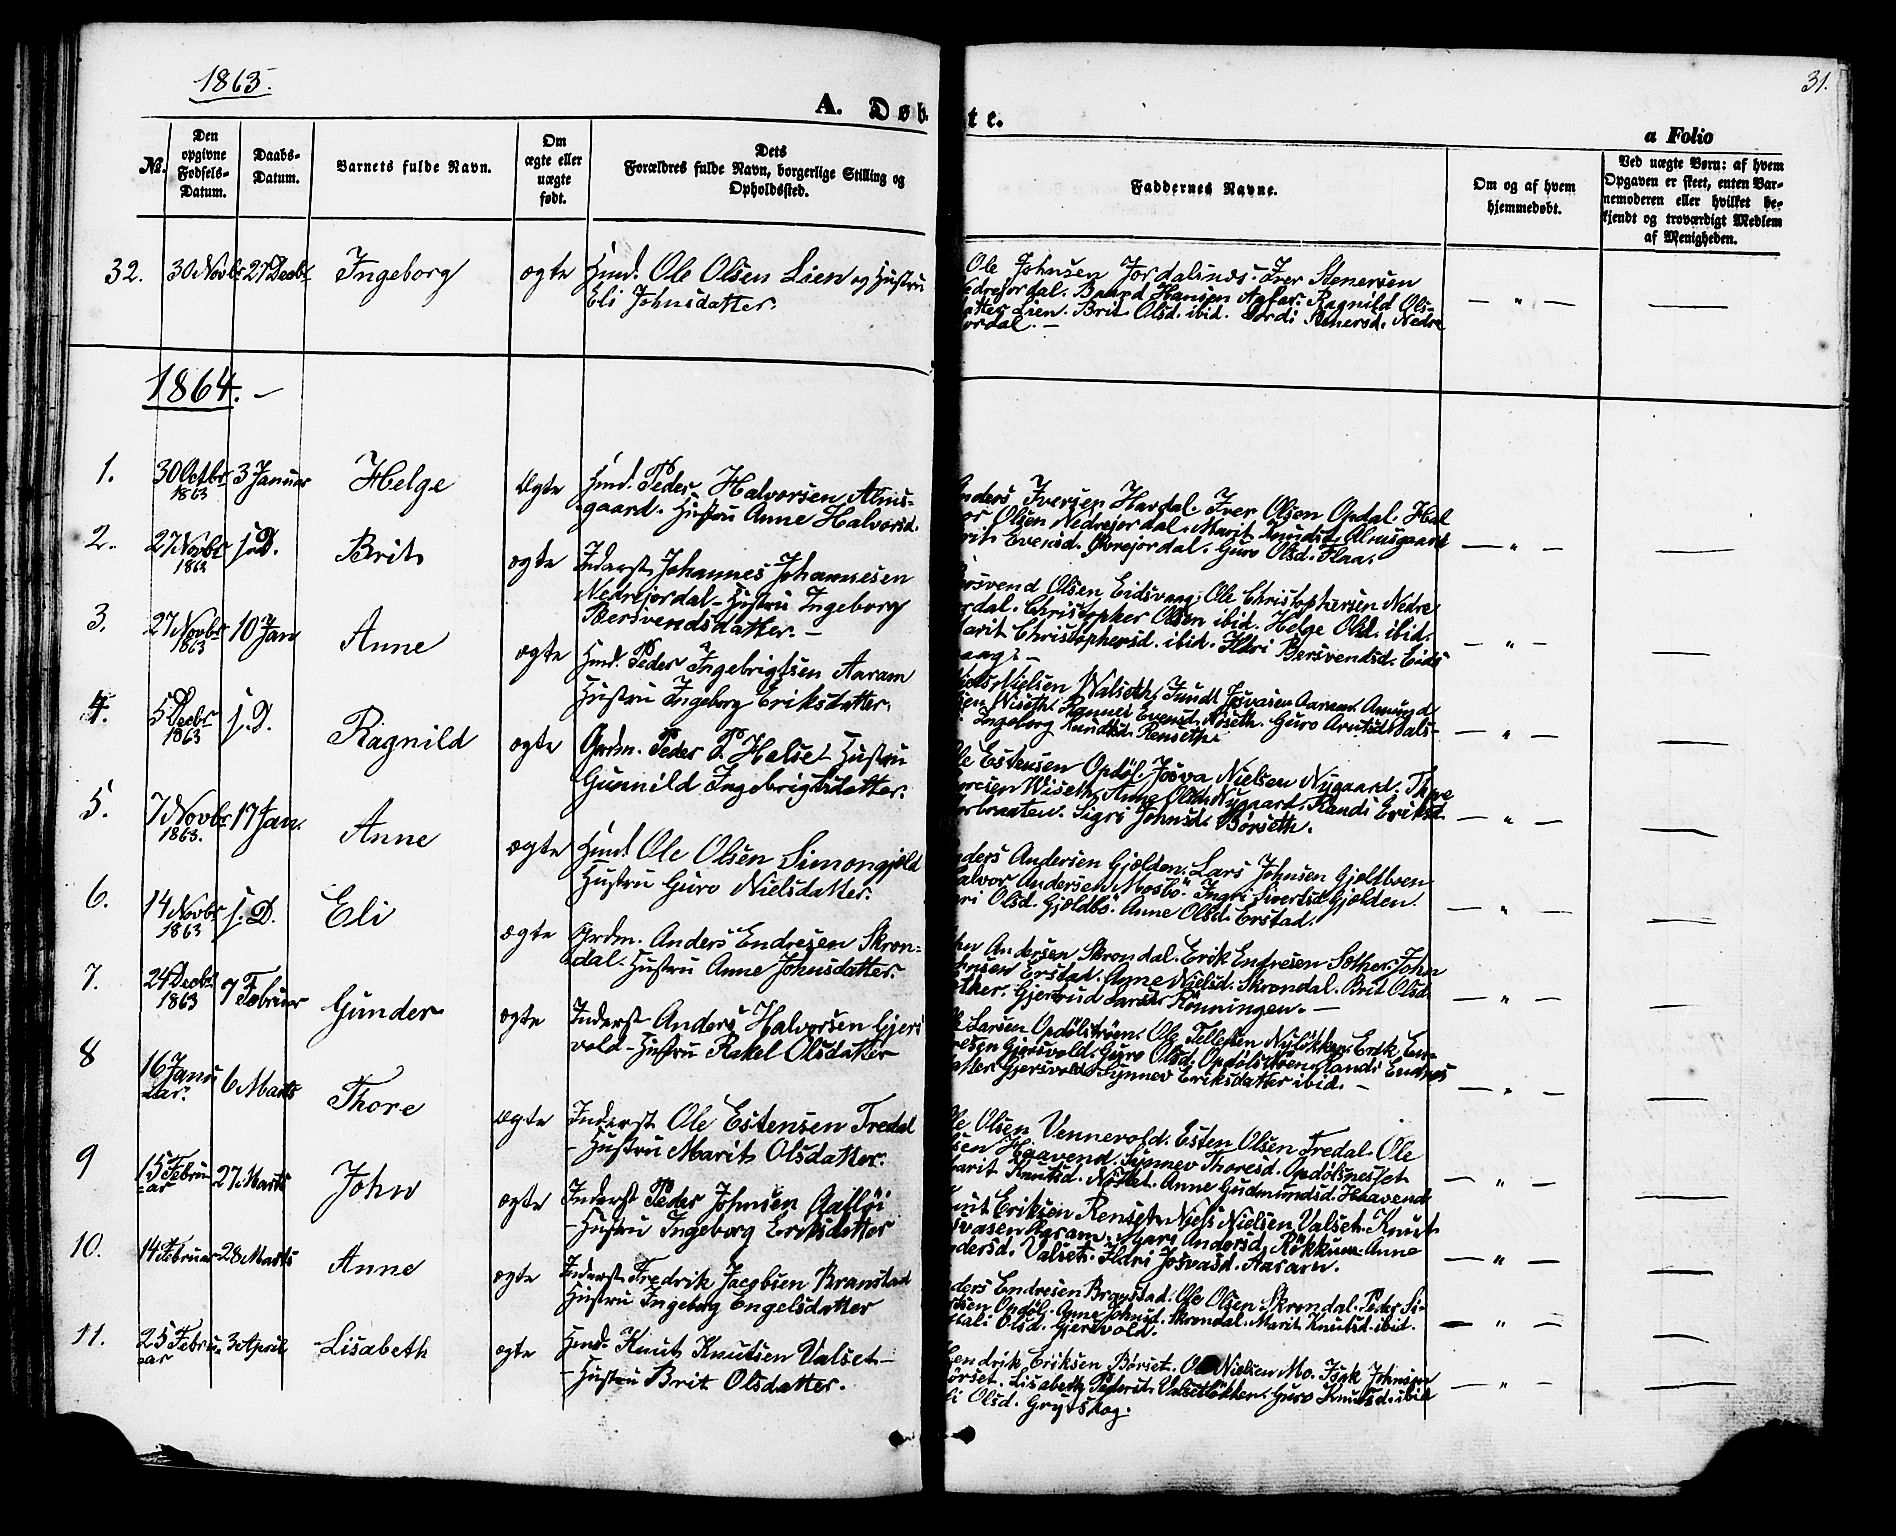 1863.
A. Døb
te.
31.
a Folio
No.
Den opgivne Fødsels-Datum.
Daabs-Datum.
Barnets fulde Navn.
Om ægte eller uægte født.
Dets Forældres fulde Navn, borgerlige Stilling og Opholdssted.
Faddernes Navne.
Om og af hvem hjemmedøbt.
Ved uægte Børn: af hvem Opgaven er skeet, enten Barnemoderen eller hvilket bekjendt og troværdigt Medlem af Menigheden.
32. 30 Novbr 27 Decbr. Ingeborg ægte Hmd. Ole Olsen Lien og Hustru
Eli Johnsdatter.
Ole Johnsen Jordalsnæs. Iver Stenersen
Nedrejordal. Baard Hansen Agfar. Ragnild Ols-
datter Lien. Brit Olsd. ibid. Gordi Stenersd. Nedre
jordal. —
— " — —
1864. —
1. 30 Octbr 1863 3 Januar Helge Ægte Hmd. Peder Halvorsen Alms-
gaard. Hustru Anne Halvorsd.
Anders Iversen Hardal. Iver Olsen Opdal. Hal
vor Olsen Nedrejordal. Marit Knudsd. Almsgaard
Brit Evensd. Øvrejordal. Guro Olsd. Flaa.
— " — —
2. 27 Novbr 1863 s. D. Brit ægte Inderst Johannes Johannesen
Nedrejordal - Hustru Ingeborg
Bersvendsdatter. —
Bersvend Olsen Eidsvaag. Ole Christophersen Nedre
jordal. Christopher Olsen ibid. Helge Olsd. ibid.
Marit Christophersd. ibid. Ildri Bersvendsd. Eids
vaag. —
— " — —
3. 27 Novbr 1863 10 Jan Anne ægte Hmd. Peder Ingebrigtsen Aaram
Hustru Ingeborg Eriksdatter.
Niels Nielsen Walseth. Josvasen Aaram. Amund
sen Wiseth. Evensd. Guro Arntsd. Vals-
Ingeborg Knudtsd. Renseth.
— " — —
4. 5 Decbr 1863 s. D. Ragnild ægte Grdm. Peder P. Helset Hustru
Gunnild Ingebrigtsdatter.
Ole Estensen Opdøl. Josva Nielsen Nygaard. Thore
Wiseth. Anne Olsd. Nygaard. Randi Eriksd.
Sigri Johnsd. Børseth.
— " — —
5. 7 Novbr 1863. 17 Jan. Anne ægte Hmd. Ole Olsen Simongjeld
Hustru Guro Nielsdatter.
Anders Andersen Gjelden. Lars Johnsen Gjeldboen
Halvor Andersen Mosbö. Ingri Sivertsd. Gjelden.
Olsd. Gjeldbö. Anne Olsd. Erstad.
— " — —
6. 14 Novbr 1863 s. D. Eli ægte Grdm. Anders Endresen Skron-
dal. Hustru Anne Johnsdatter.
John Andersen Skrondal. Erik Endresen Søther. John
Johnsen Erstad. Anne Nielsd. Skrondal. Brit Olsd.
Søther. Gjertrud Larsd. Rönningen. —
— " — —
7. 24 Decbr 1863 7 Februar Gunder ægte Inderst Anders Halvorsen Gjers
vold - Hustru Rakel Olsdatter
Larsen Opdølströen. Ole Tellefsen Nylökken. Erik En-
dresen Gjersvold. Guro Olsd. Opdølströen. Randi Endres
datter Gjersvold. Synnev Eriksdatter ibid. —
— " — —
8 16 Janu ar. 6 Marts Thore ægte Inderst Ole Estensen Fredal
- Hustru Marit Olsdatter.
Ole Olsen Vennevold. Esten Olsen Fredal. Ole
Olsen Haavend. Synnev Thoresd. Opdølsnesset
Marit Knutsd. Anne Gudmundsd. Haavend
— " — —
9 15 Febru ar 27 Marts John ægte Inderst Peder Johnsen Aafløi
- Hustru Ingeborg Eriksdatter
Knut Eriksen Renset. Niels Nielsen Valset. Knut
Josvasen Aaram. Mari Andersd. Rökkum. Anne
Andersd. Valset. Ildri Josvasd. Aaram.
— " — —
10. 14 Februar 28 Marts Anne ægte Inderst Fredrik Jacobsen Branstad
Hustru Ingeborg Engelsdatter
Anders Endresen Branstad. Ole Olsen Skrondal. Peder Si-
Opdöl. Anne Johnsd. Skrondal. Marit Knutsd. ibid.
Olsd. Gjersvold.
— " — —
11. 25 Febru ar 3 April Lisabeth ægte Hmd. Knut Knutsen Valset -
- Hustru Brit Olsdatter.
Hendrik Eriksen Börset. Ole Nielsen Mo. Isak Johnsen
Börset. Lisabeth Pedersd. Valsetlökken. Guro Knutsd. ibid
Olsd. Grytskog.
— " — —